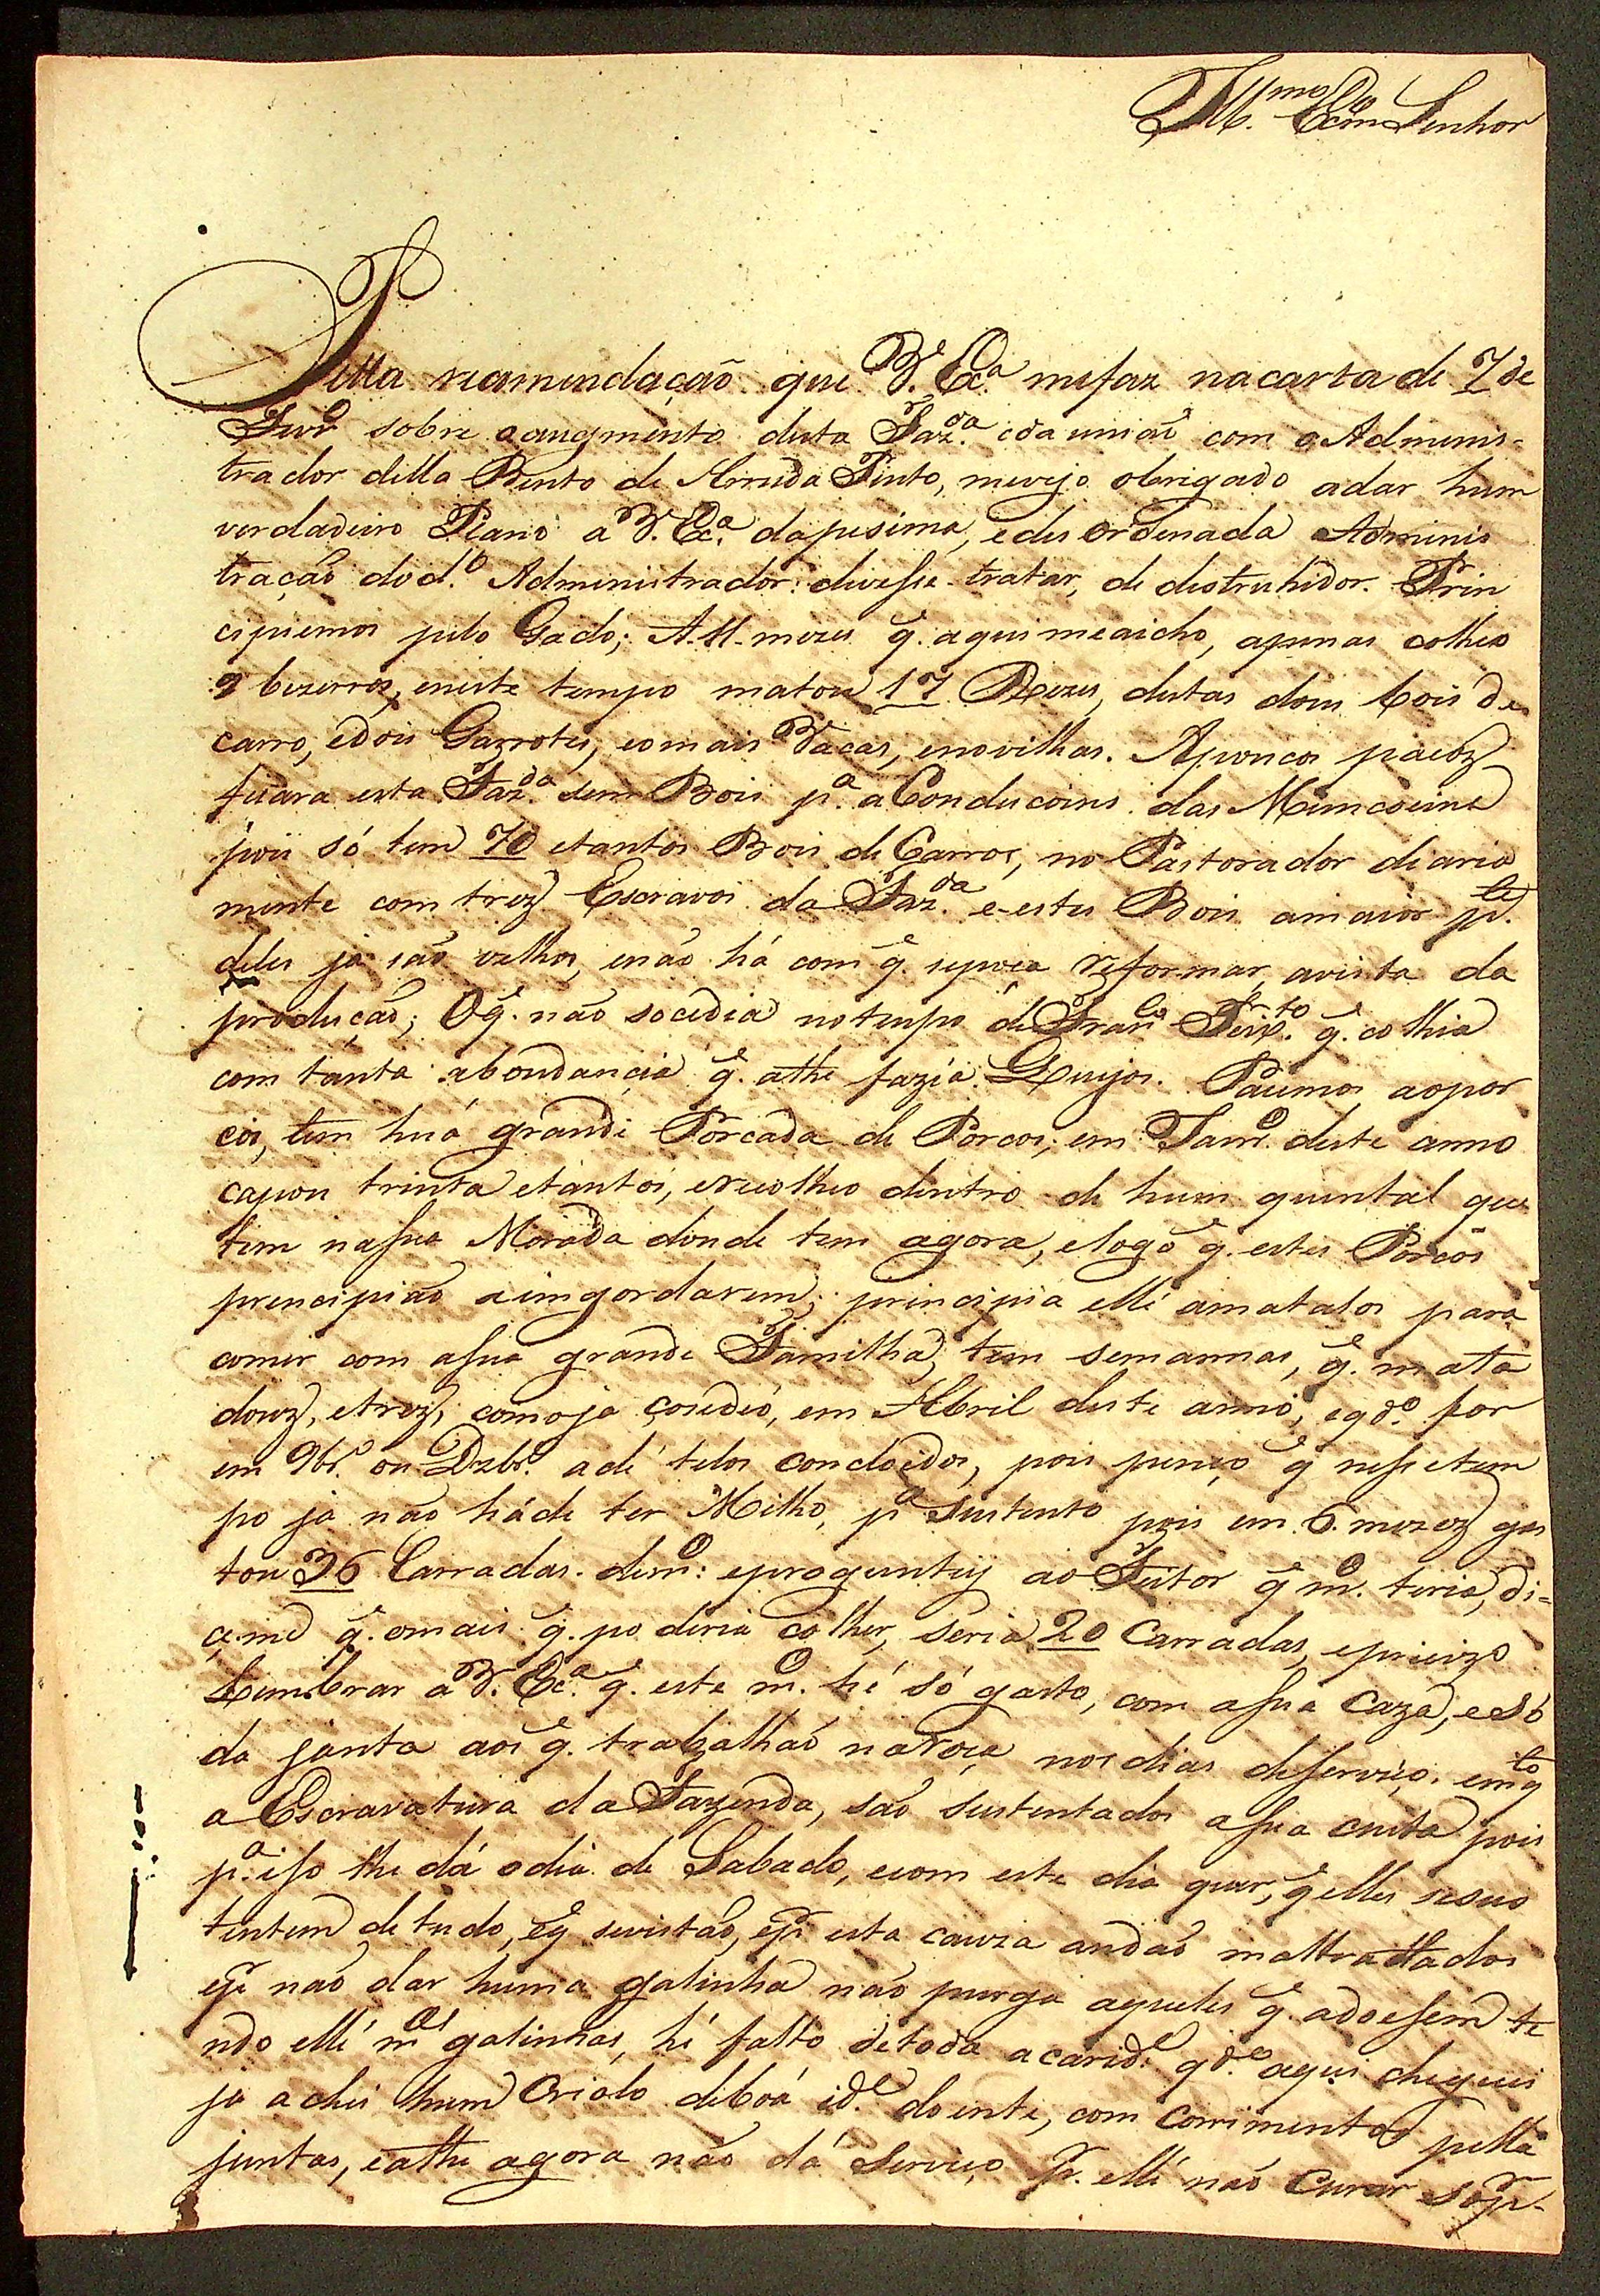 Ill.mo Ex.mo Senhor
Pella recomendação que V. Ex.ª mefaz nacarta de 7 de
Fevr.º sobre o augmento desta Faz.da e da união com o Adminis-
trador della Bento de Arruda Pinto, mevejo obrigado adar hum
verdadeiro Plano a V. Ex.ª da pesima, e des ordenada Adminis
tração dod.º Administrador: divesse tratar, de destruhidor. Prin
cipiemos pelo Gado; A 11 mezes q. aqui meaicho, apenas colheo
9 bezerros, eneste tempo matou 17 Rezes, destas dous bois de
carro, edois Garrotes, eomais Vacas, enovilhas. Apoucos paeoz
ficara esta Faz.da sem Bois p.ª a Conducoins das
pois só tem 70 etantos Bois de Carros, no Pastorador diaria
mente com trez Escravos da Faz.da e estes Bois amaior p.te
deles ja são velhos, enão há com q. sepoça reformar, avista da
produção; O q. não socedia notempo de Fran.co Pinto q. colhia
com tanta abondancia q. athe fazia Queijos. Pacemos aopor
cos, tem huã grande Porcada de Porcos; em Janr.º deste anno
capou trinta etantos, erecolheo dentro de hum quintal que
tem nasua Morada donde tem agora, elogo q. estes Porcos
prencipião aimgordarem; principia elle amatalos para
comer com asua grande Familha, tem semannas, q. mata
douz, etrez, comoja çosedeo, em Abril deste anno, eqd.º for
em 9br.º ou Dzbr.º adé telos concloidos, pois penço q nesse tem
po ja não háde ter Milho, p.ª sustento pois em 6 mezez gas
tou 36 Carradas. dem.º: eproguntey ao Feitor q m.º teria, di-
çeme q. omais q. po deria colher, seria 20 Carradas, epreuzo
Lembrar a V. Ex.ª q. este m.º hé só gasto, com asua Caza, e só
da janta aos q. trabalhaõ naroça nos dias deserviço, emq.to
a Escravatura da Fazenda, são sustentados asua custa pois
p.ª iso lhe dá odia de Sabado, ecom este dia quer, q elles sesus
tentem de tudo, eq sevistão, epr. esta cauza andaõ maltratados
epr. não dar huma galinha não purga aqueles q. adoesem te
ndo elle m.as galinhas, hé falto detoda acarid.e qd.º aqui cheguei
ja achei hum Criolo deboá id.e doente, com Corrimentos pella
juntas, eathe agora não dá serviço pr. elle não Curar, só pr.